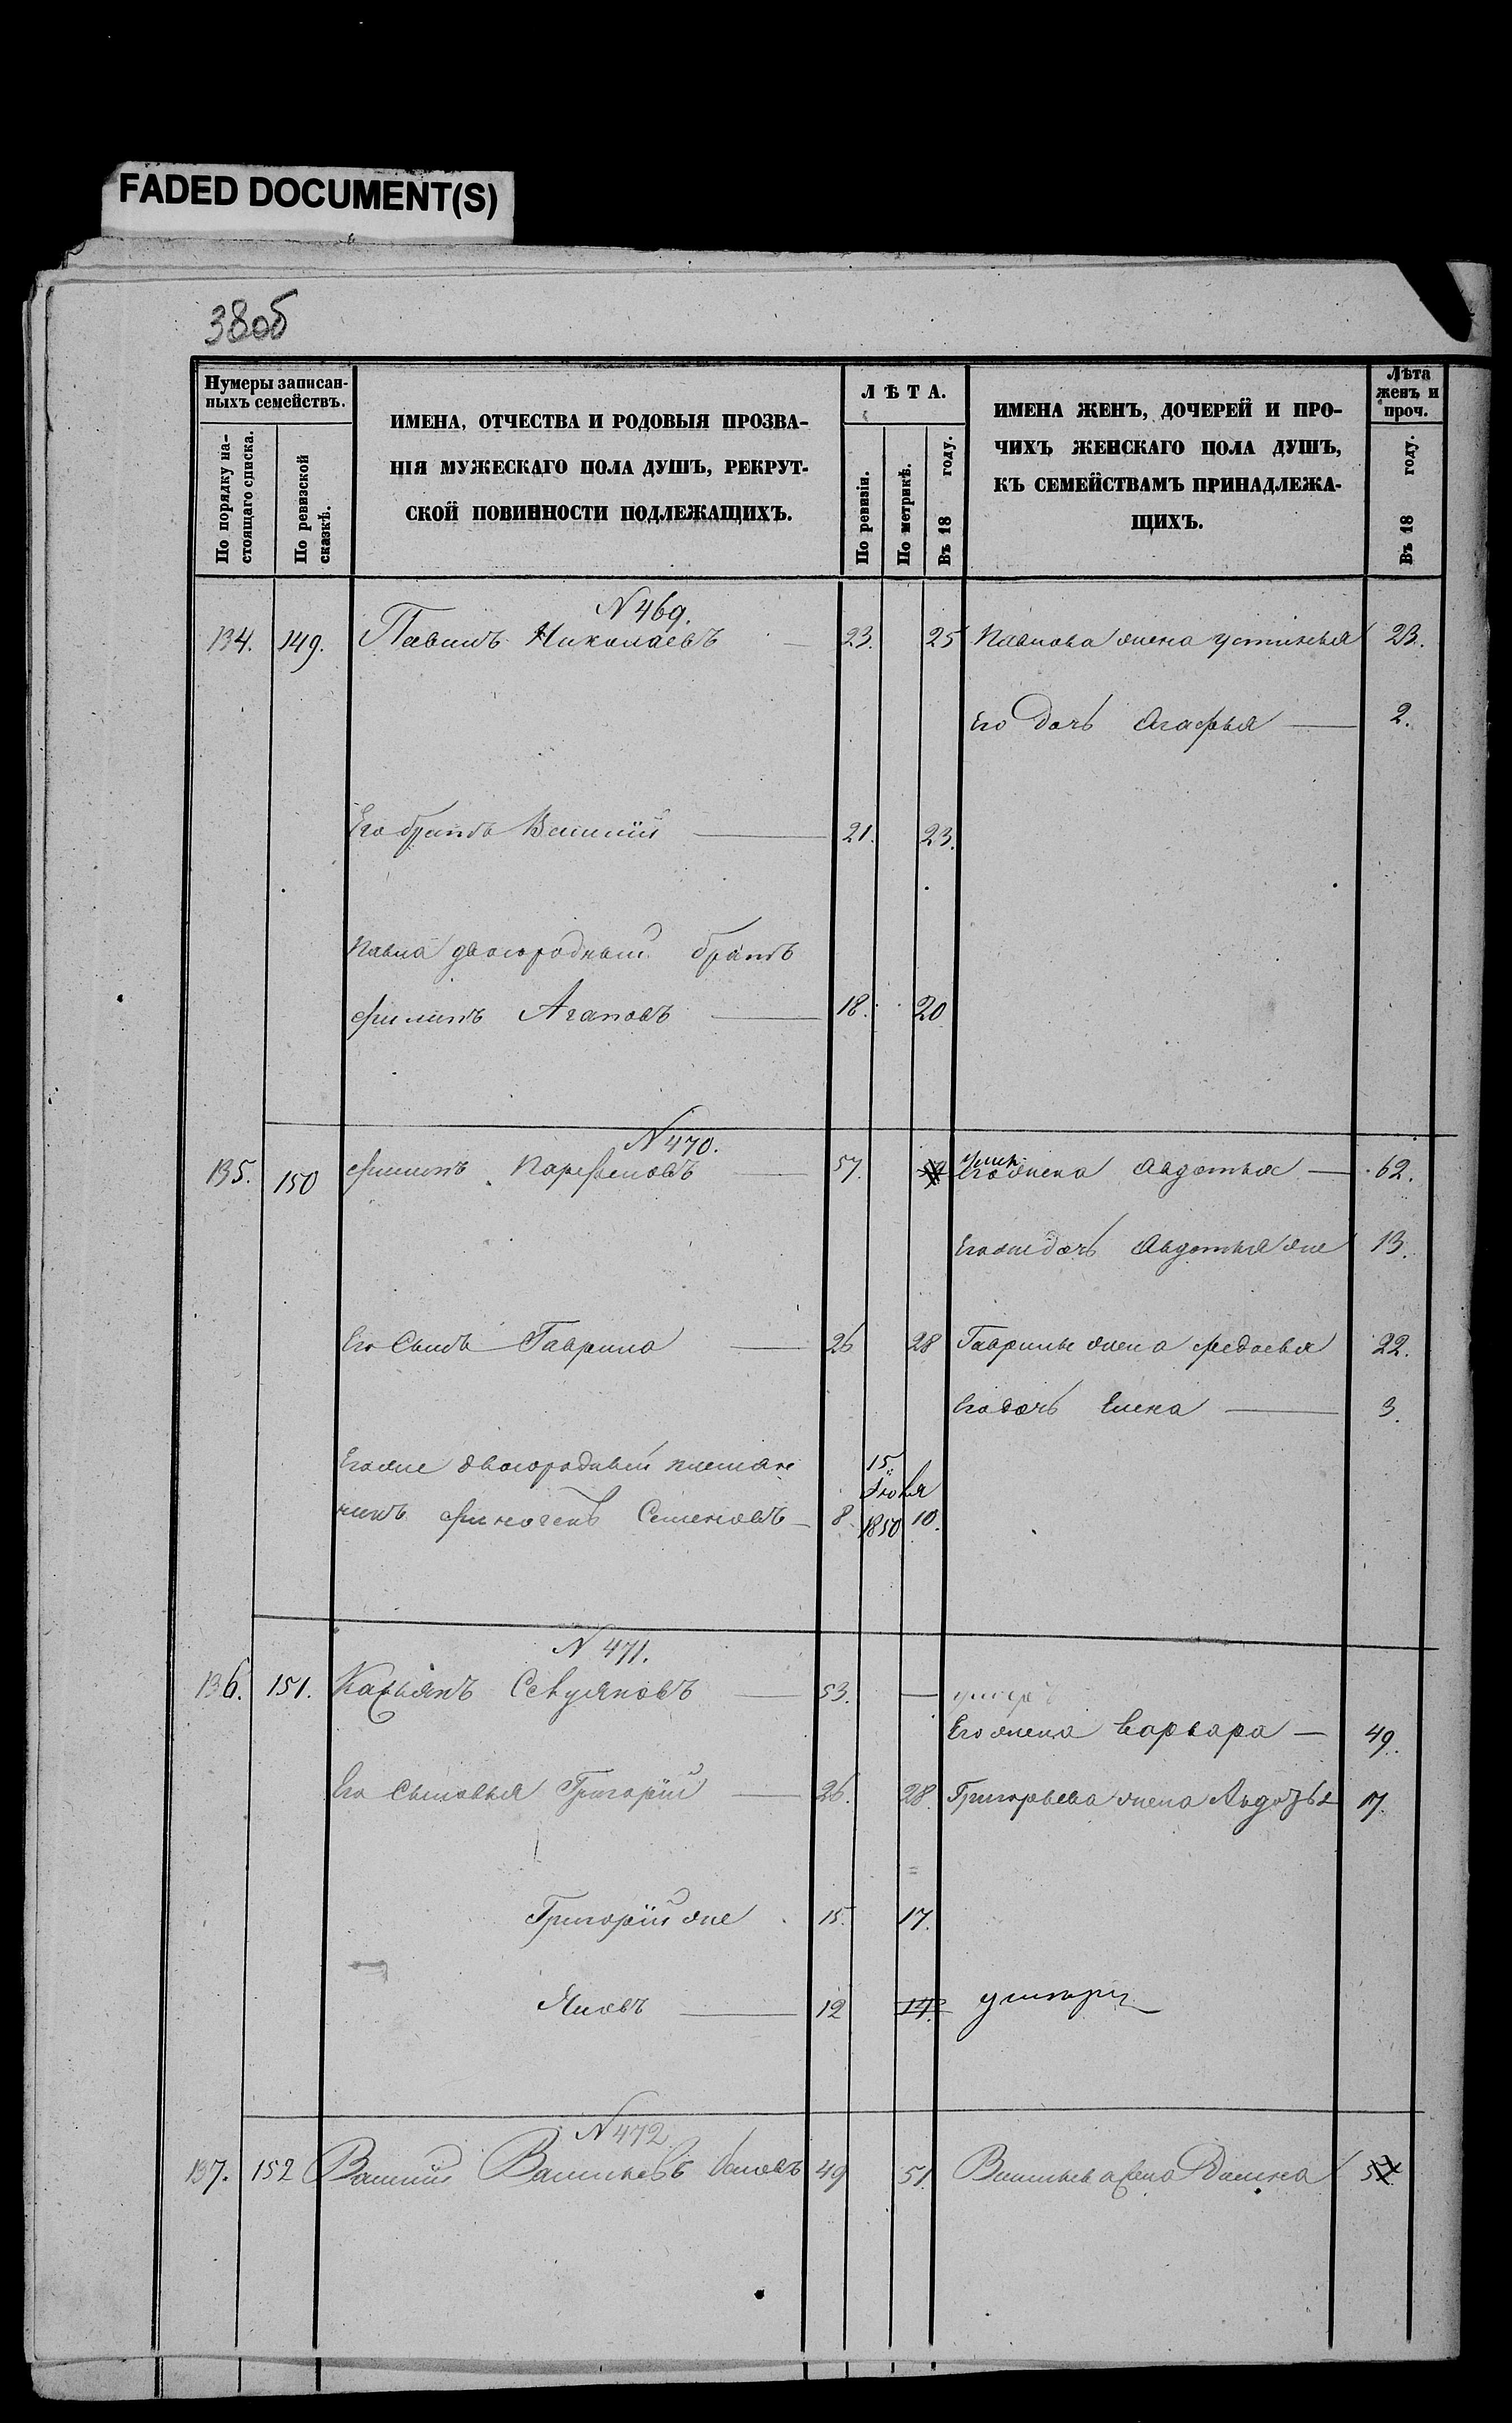 FADED DOCUMENT(S)
38об
Нумеры записан-
ныхъ семействъ.
По порядку на-
стоящаго списка.
По ревизской
сказкѣ.
ИМЕНА, ОТЧЕСТВА И РОДОВЫЯ ПРОЗВА-
НІЯ МУЖЕСКАГО ПОЛА ДУШЪ, РЕКРУТ-
СКОЙ ПОВИННОСТИ ПОДЛЕЖАЩИХЪ.
ЛѢТА.
По ревизіи.
По метрикѣ.
Въ 18 году.
ИМЕНА ЖЕНЪ, ДОЧЕРЕЙ И ПРО-
ЧИХЪ ЖЕНСКАГО ПОЛА ДУШЪ,
КЪ СЕМЕЙСТВАМЪ ПРИНАДЛЕЖА-
ЩИХЪ.
Лѣта
женъ и
проч.
Въ 18 году.
N 469.
134. 149. Павилъ Николаевъ 23. 25 Павлова жена Устинья 23.
Его дочь Агафья 2.
Его братъ Василій 21. 23.
Павла двоюродный братъ
Филипъ Агаповъ 18. 20
N 470.
135. 150 Филипъ Парфеновъ 57. 59 Его жена Авдотья 62.
Егоже дочь Авдотья же 13.
Его Сынъ Гаврило 26 28 Гаврилы жена Федосья 22.
Его дочь Елена 3.
Егоже двоюродный племян
никъ Финогенъ Семеновъ 8 15 Іюля 1850 10.
N 471.
136. 151. Касьянъ Севуяновъ 53. — умеръ
Его жена Варвара 49.
Его Сыновья Григорій 26. 28. Григорьева жена Авдотья 17.
Григорій же 15. 17.
Яковъ 12 14.
N 472
137. 152 Василій Васильевъ 49 51.